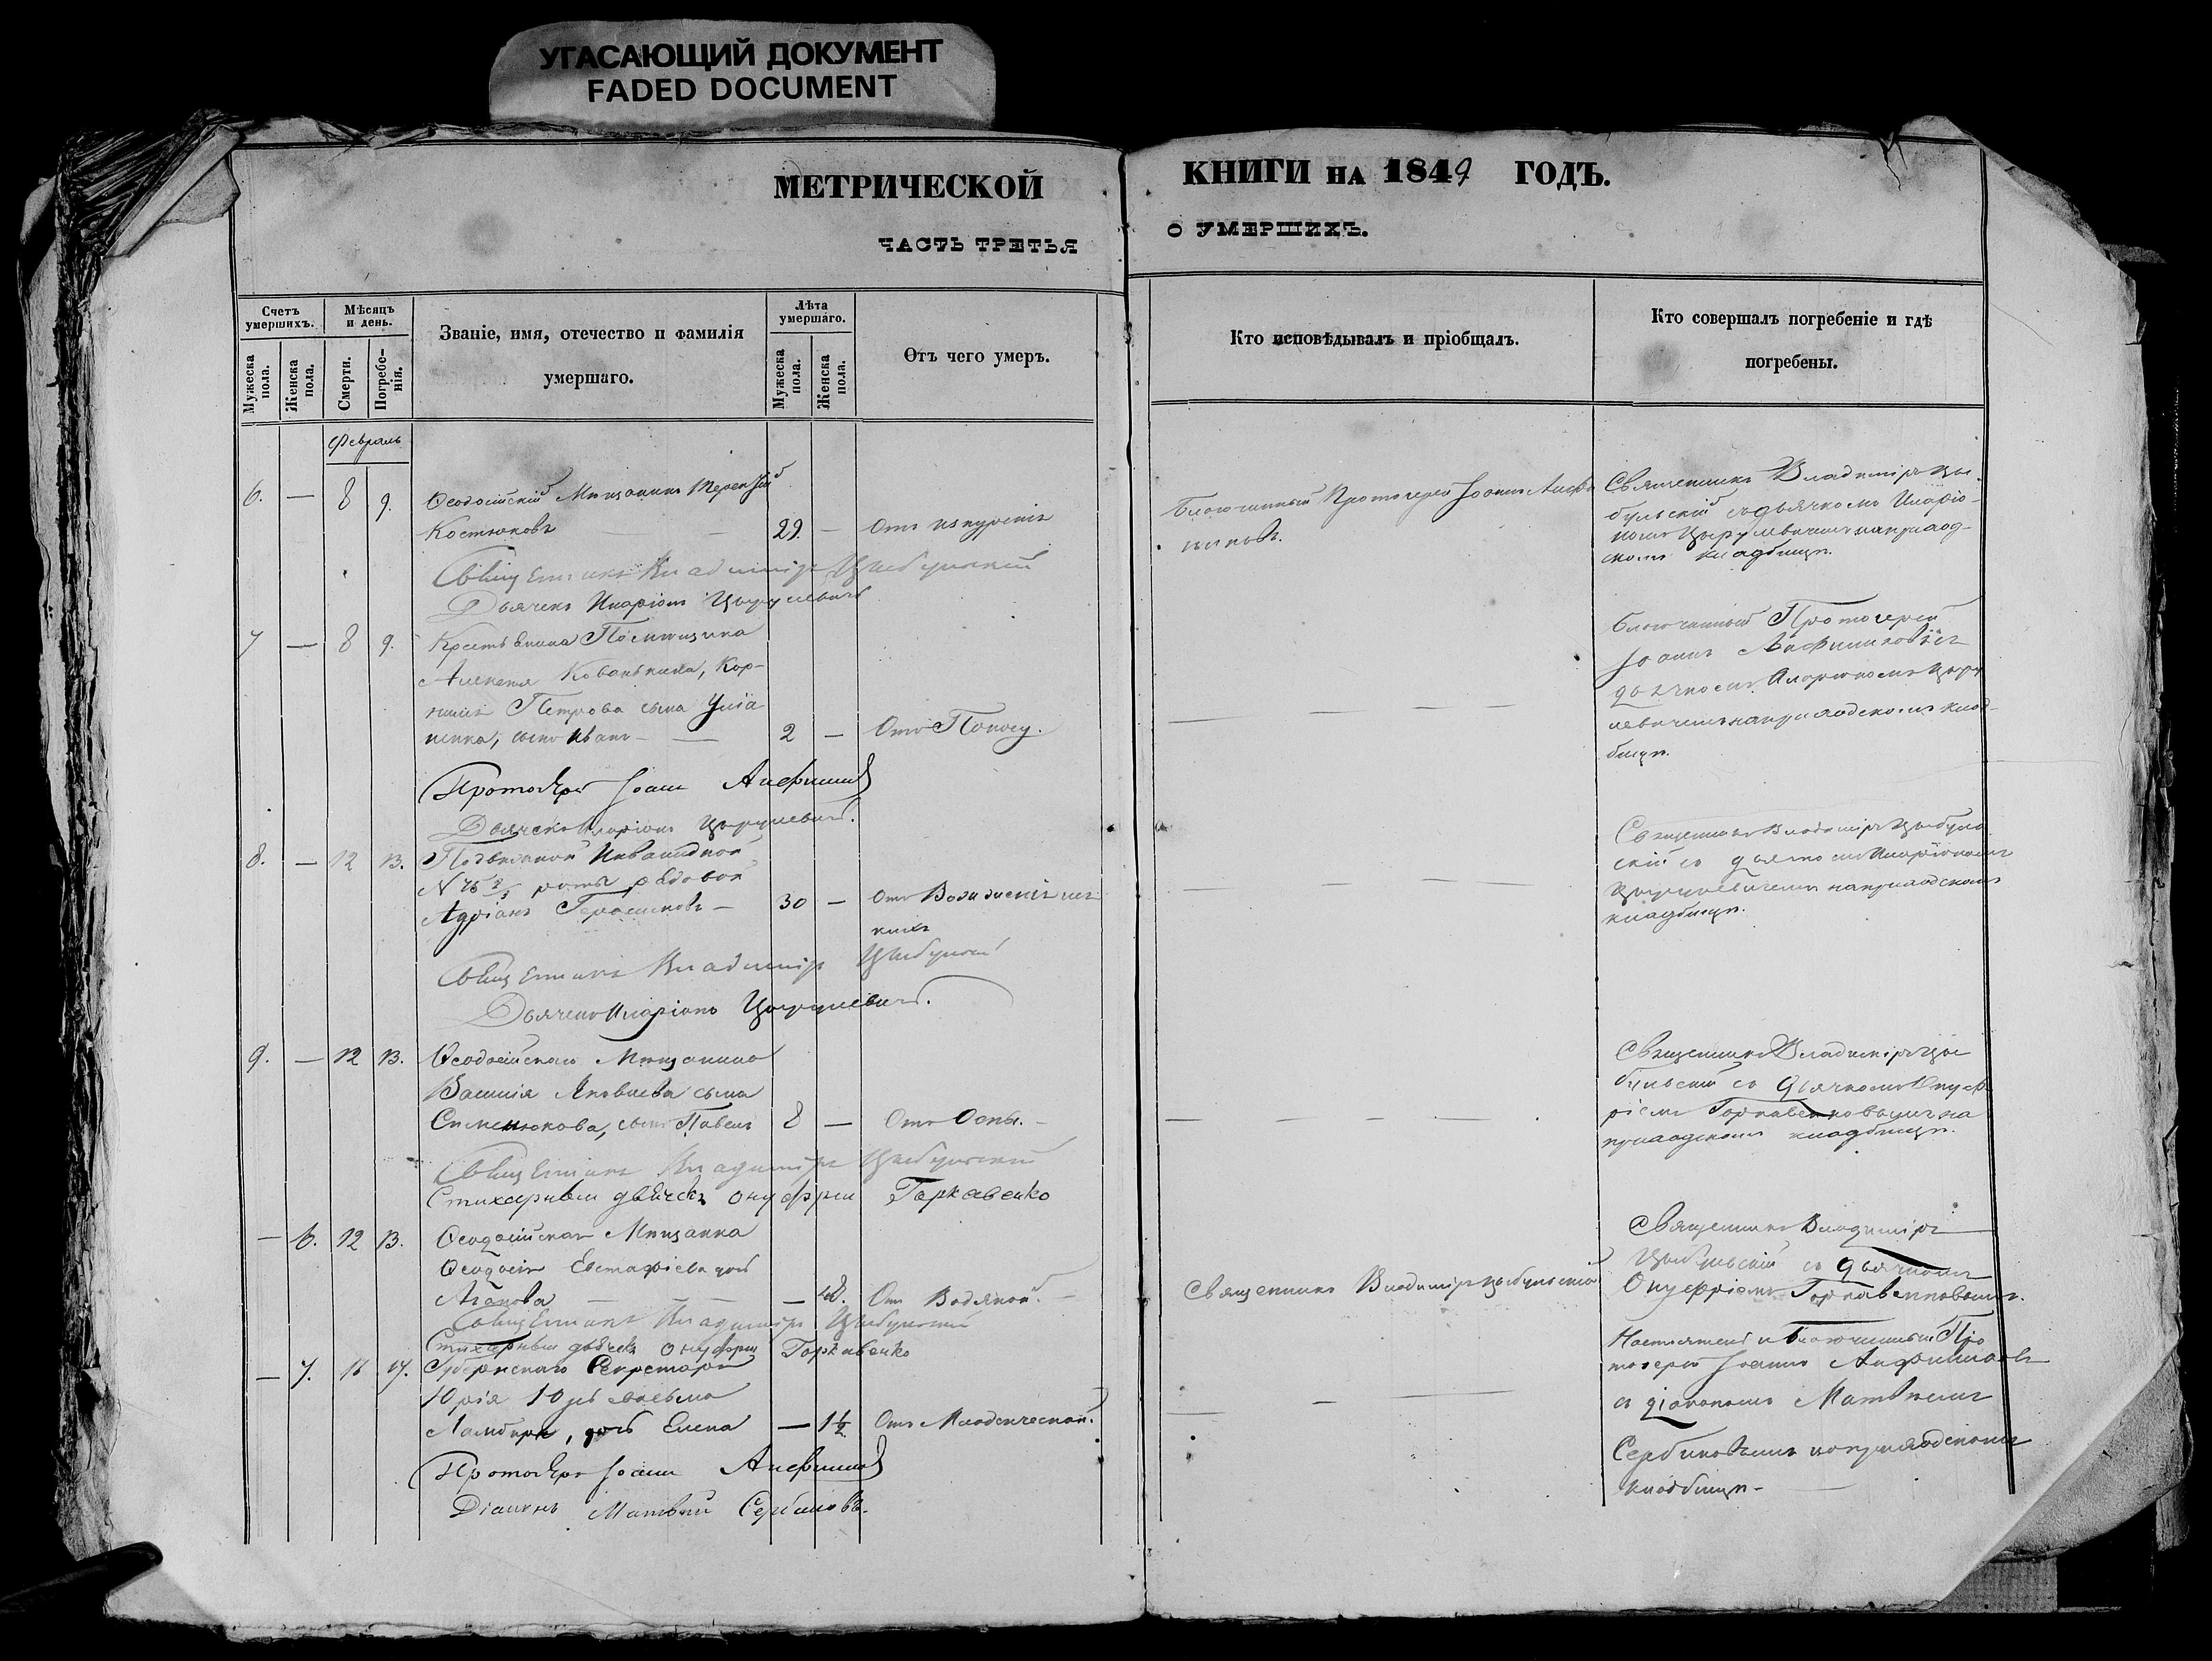 УГАСАЮЩИЙ ДОКУМЕНТ
FADED DOCUMENT
МЕТРИЧЕСКОЙ
ЧАСТЬ ТРЕТЬЯ
КНИГИ НА 1849 ГОДЪ.
О УМЕРШИХЪ.
Счетъ умершихъ.
Мужеска пола.
Женска пола.
Мѣсяцъ и день.
Смерти.
Погребенія.
Званіе, имя, отечество и фамилія
умершаго.
Лѣта умершаго.
Мужеска пола.
Женска пола.
Отъ чего умеръ.
Кто исповѣдывалъ и пріобщалъ.
Кто совершалъ погребеніе и гдѣ
погребены.
Февраль
6. — 8 9. Ѳеодосійскій Мѣщанинъ Терентій
Костюковъ — — 29. —
Благочинный Протоіерей Іоаннъ
Священникъ Владиміръ Цы-
бульскій съ дьячкомъ Иларіо-
номъ Цырулевичемъ на приход-
скомъ кладбищѣ.
Священникъ Владиміръ Цыбульскій
Дьячекъ Иларіонъ Цырулевичъ
7 — 8 9.
Кор-
нилія Петрова сына
сынъ Иванъ — — 2 — Отъ Поносу.
Благочинный Протоіерей
Іоаннъ
дьячкомъ Иларіономъ Цыру
левичемъ на приходскомъ клад-
бищѣ.
Протоіерей Іоаннъ
Дьячекъ Иларіонъ Цырулевичъ.
8. — 12 13. Инвалидной
роты рядовой
Адріанъ Герасимовъ — 30 — Отъ
Священникъ Владиміръ Цыбуль
скій съ дьячкомъ Иларіономъ
Цырулевичемъ на приходскомъ
кладбищѣ.
Священникъ Владиміръ Цыбульскій
Дьячекъ Иларіонъ Цырулевичъ.
9. — 12 13. Ѳеодосійскаго Мѣщанина
Василія Яковлева сына
Сименюкова, сынъ Павелъ 8 — Отъ Оспы. —
Священникъ Владиміръ Цы
бульскій съ дьячкомъ Онуф-
ріемъ Горкавенковымъ на
приходскомъ кладбищѣ.
Священникъ Владиміръ Цыбульскій
Стихарный дьячекъ Онуфрій Горкавенко
— 6. 12 13. Ѳеодосійская Мѣщанка
Ѳеодосія Евстафіева дочь
— 48. Отъ Водяной. —
Священникъ Владиміръ Цыбульскій
Священникъ Владиміръ
Цыбульскій съ дьячкомъ
Онуфріемъ Горкавенковымъ.
Священникъ Владиміръ Цыбульскій
Стихарный дьячекъ Онуфрій Горкавенко
— 7. 16 17. Губернскаго Секретаря
Юрія
дочь Елена — 1½ Отъ Младенческой.
Настоятель и Благочинный Про
тоіерей Іоаннъ
съ діакономъ Матвѣемъ
Сербиновымъ на приходскомъ
кладбищѣ —
Протоіерей Іоаннъ
Діаконъ Матвѣй Сербиновъ.